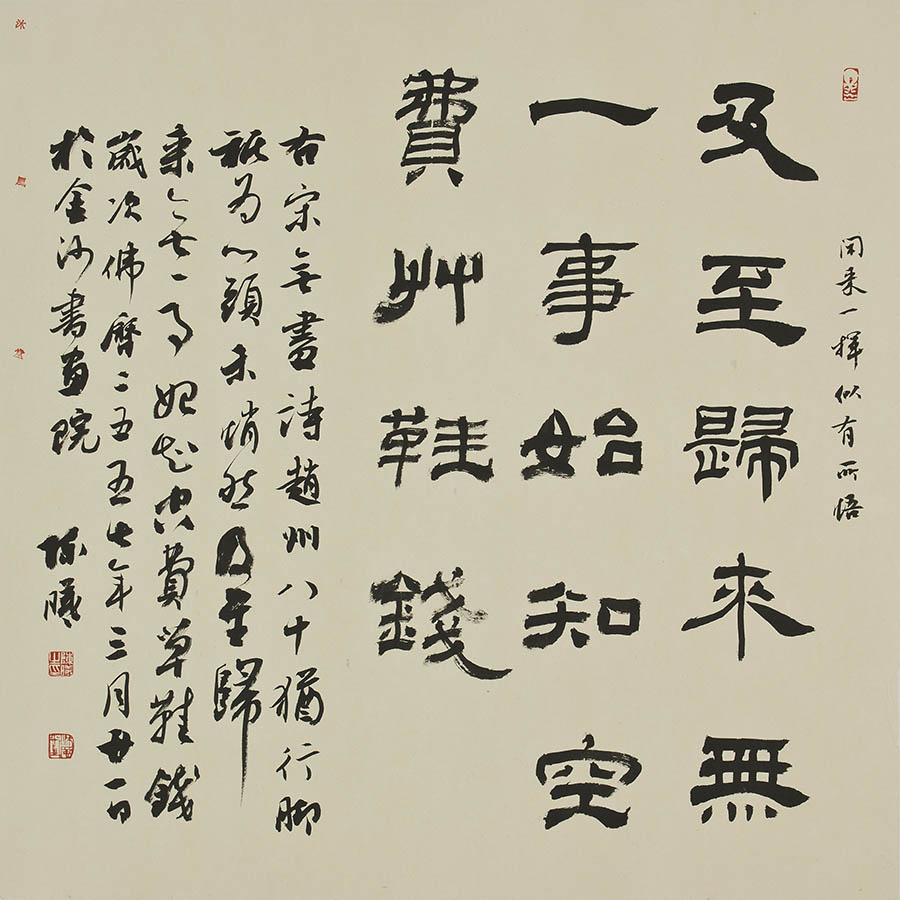 閑来一揮似有所悟
及至歸来無
一事始知空
費艸鞋錢
右宋无盡詩趙州八十猶行脚
祇为心頭未悄然及至歸
来无一事始知空費草鞋錢
歲次佛曆二五五七年三月廿一日
於金沙書畫院 陳曦